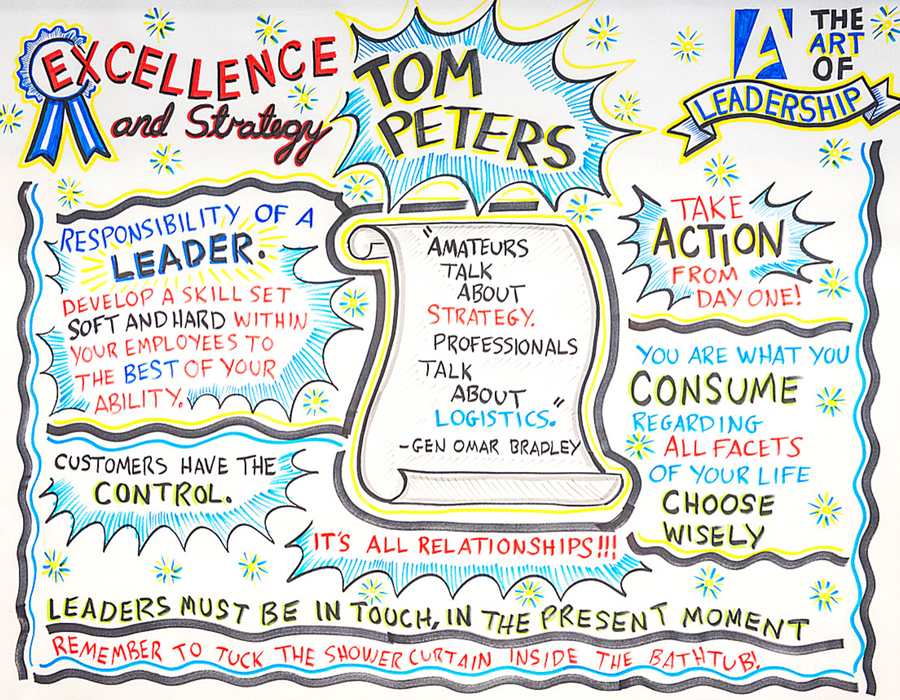 EXCELLENCE
and Strategy
TOM
PETERS
THE
ART
OF
LEADERSHIP
RESPONSIBILITY OF A
LEADER.
DEVELOP A SKILL SET
SOFT AND HARD WITHIN
YOUR EMPLOYEES TO
THE BEST OF YOUR
ABILITY.
CUSTOMERS HAVE THE
CONTROL.
"AMATEURS
TALK
ABOUT
STRATEGY.
PROFESSIONALS
TALK
ABOUT
LOGISTICS."
-GEN OMAR BRADLEY
TAKE
ACTION
FROM
DAY ONE!
YOU ARE WHAT YOU
CONSUME
REGARDING
ALL FACETS
OF YOUR LIFE
CHOOSE
WISELY
IT'S ALL RELATIONSHIPS!!!
LEADERS MUST BE IN TOUCH, IN THE PRESENT MOMENT
REMEMBER TO TUCK THE SHOWER CURTAIN INSIDE THE BATHTUB!